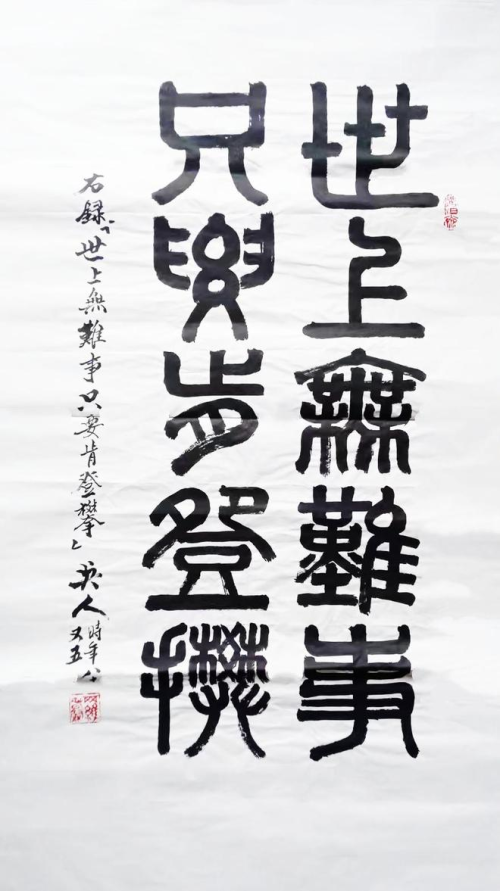 世上無難事
只要肯登攀
右錄「世上無難事只要肯登攀」人時年八
又五